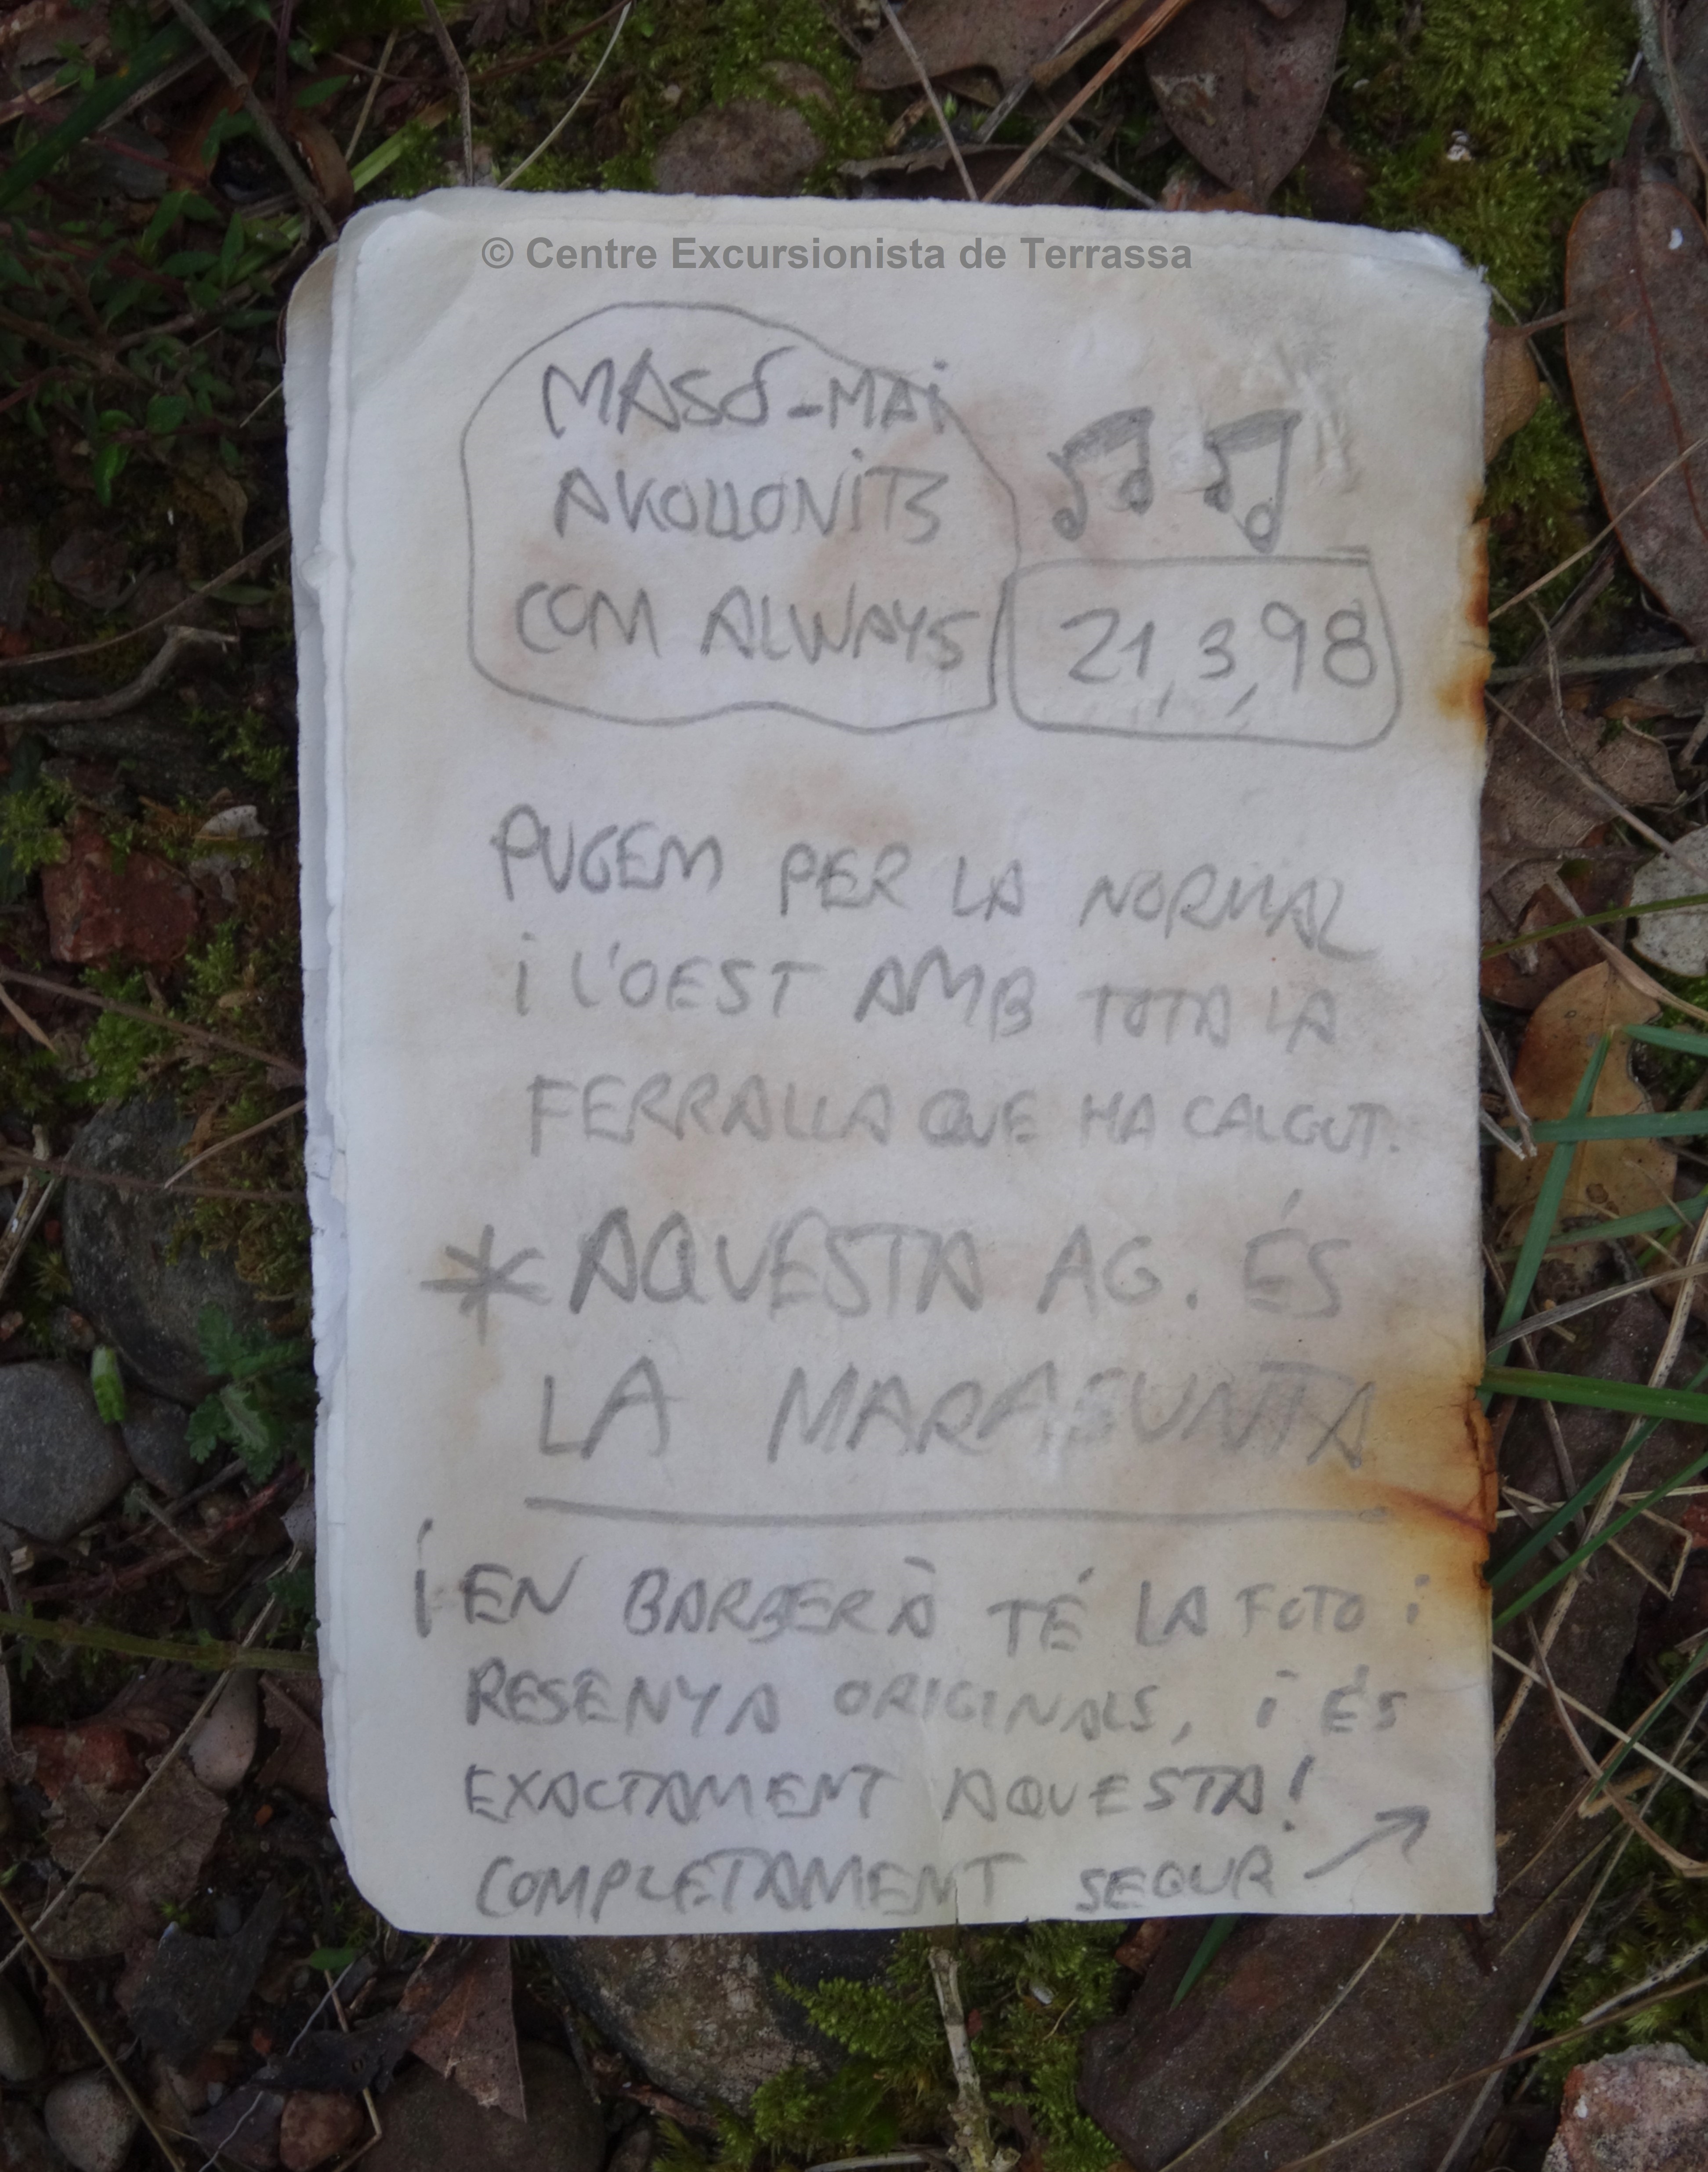 © Centre Excursionista de Terrassa
MASÓ-MAI
AKOLLONITS
COM ALWAYS
21,3,98
PUGEM PER LA NORMAL
i L'OEST AMB TOTA LA
FERRALLA QUE HA CALGUT.
* AQUESTA AG. ÉS
LA MARABUNTA
¡EN BARBERÀ TÉ LA FOTO i
RESENYA ORIGINALS, i ÉS
EXACTAMENT AQUESTA!
COMPLETAMENT SEGUR ↗